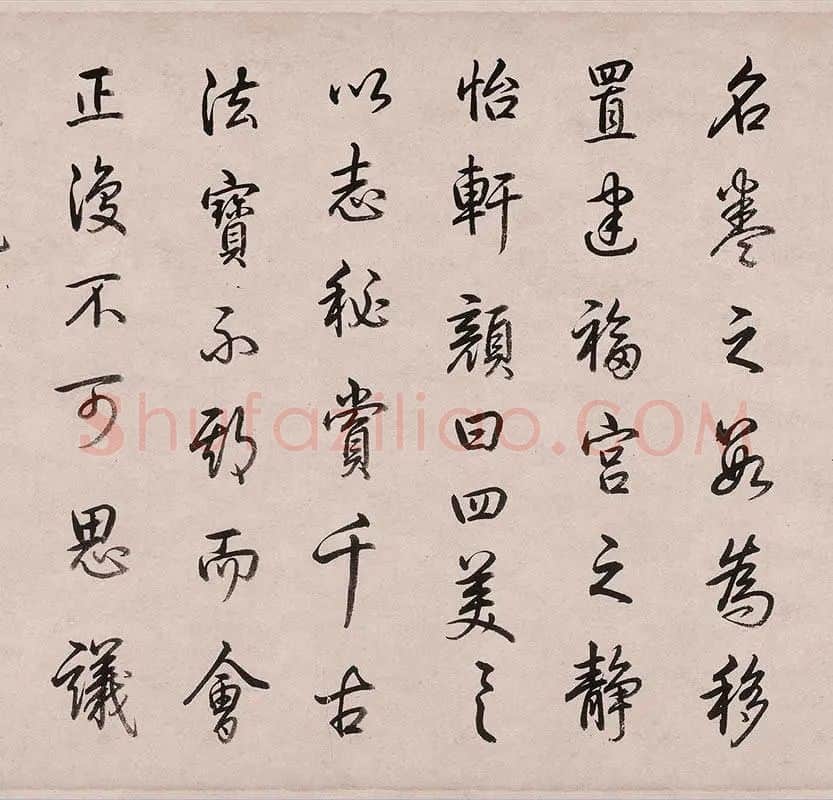 名卷之數為移
置建福宮之靜
怡軒顏曰四美具
以志秘賞千古
法寶不期而會
正復不可思議
Shufaziliao.COM